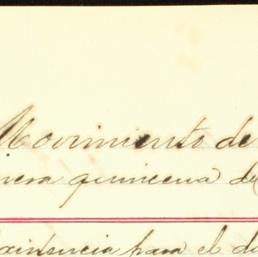 Movimiento de
mera quincena de
existencia para el d